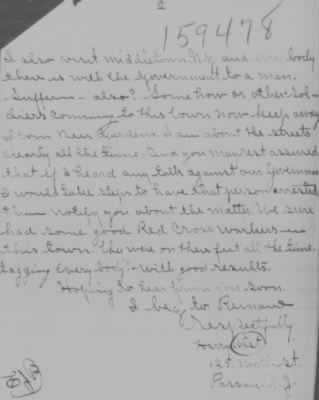 2
159478
I also visit middletown. N.Y. and every body
their is with the Government to a man.
Suffern - also? Some how or other Sol-
diers comming to this town now keep away
from Beer Gardens. I am about the streets
nearly all the time. And you may rest assured
that if I heard any talk against our Government
I would take steps to have that person arrested
then notify you about the matter. We sure
had some good Red Cross workers - in
this town. they were on there feet all the time.
tagging Every body? - with good results.
Hoping to hear from you soon.
I beg to Remain
respectfully
Harry
125. Ninth - St.
Passaic N.J.